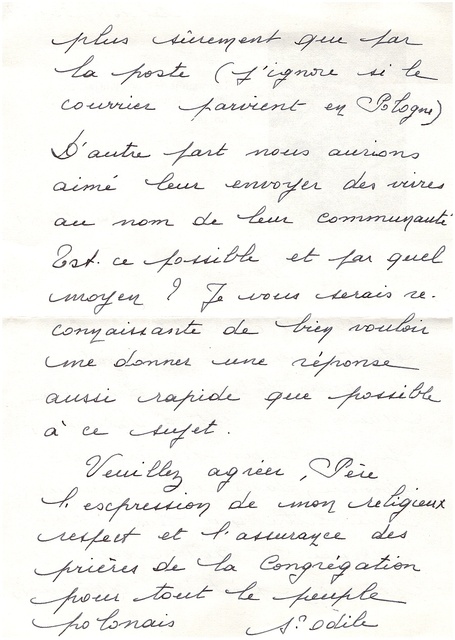 plus sûrement que par
la poste (j'ignore si le
courrier parvient en Pologne)
D'autre part nous aurions
aimé leur envoyer des vivres
au nom de leur communauté
Est-ce possible et par quel
moyen ? Je vous serais re-
connaissante de bien vouloir
me donner une réponse
aussi rapide que possible
à ce sujet.
Veuillez agréer, Père
l'expression de mon religieux
respect et l'assurance des
prières de la Congrégation
pour tout le peuple
polonais Sr Odile